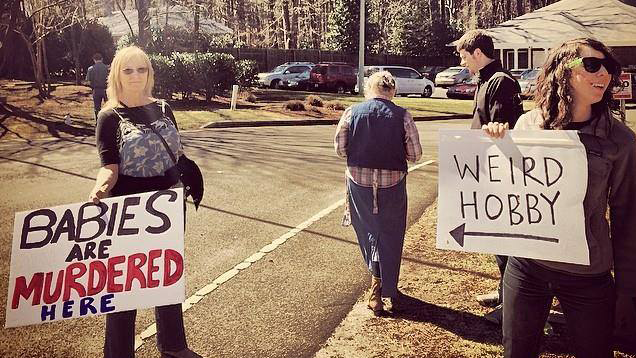 BABIES
ARE
MURDERED
HERE
WEIRD
HOBBY